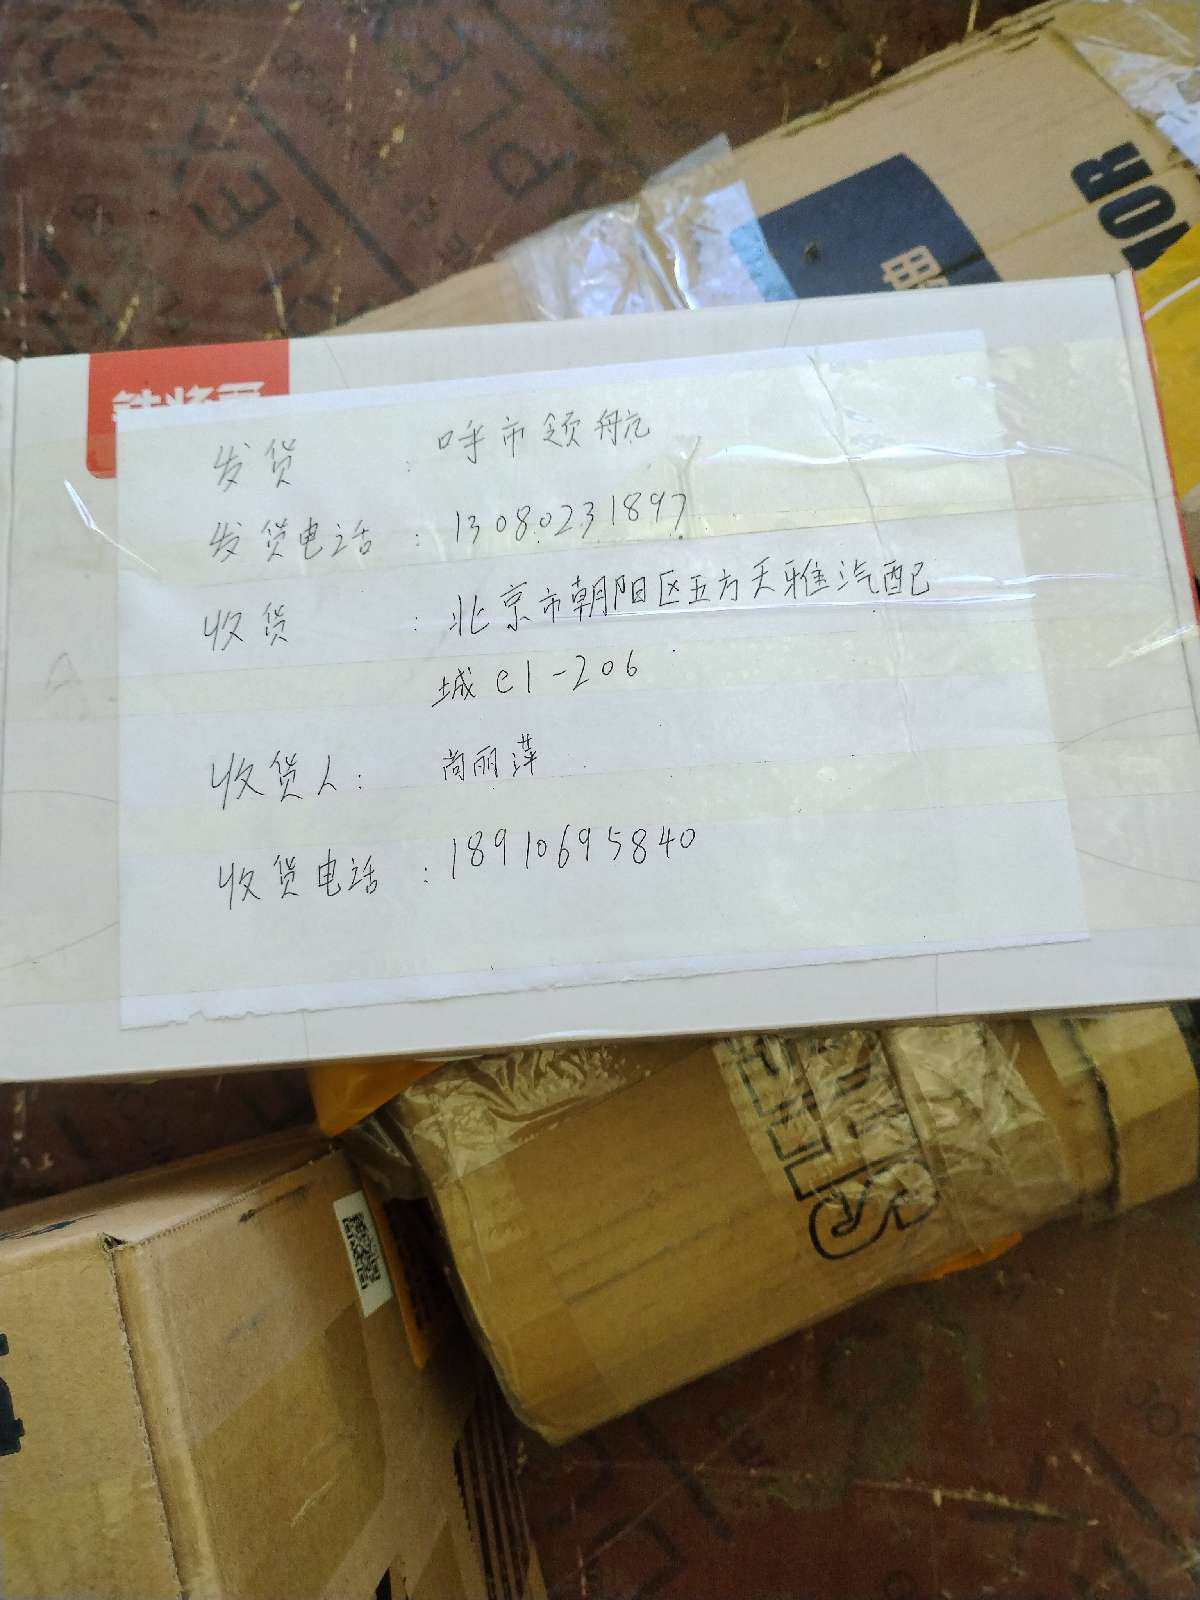 铁将军
发货 : 呼市领航
发货电话 : 13080231897
收货 : 北京市朝阳区五方天雅汽配
城 e1-206
收货人: 尚丽萍
收货电话 : 18910695840